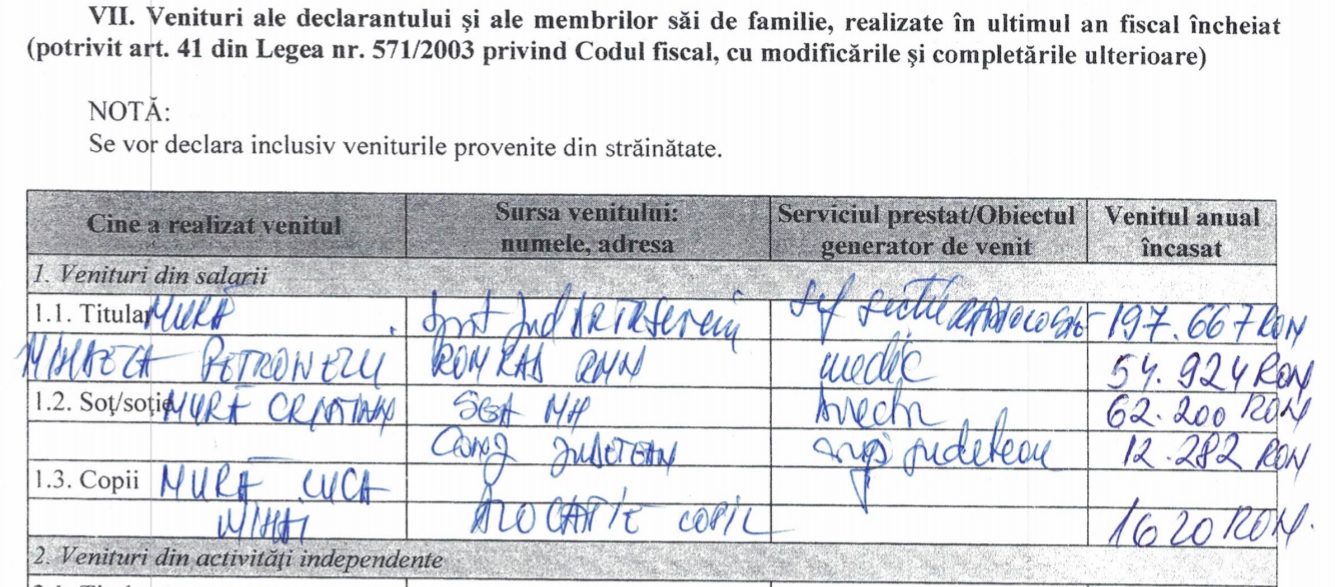 VII. Venituri ale declarantului şi ale membrilor săi de familie, realizate în ultimul an fiscal încheiat
(potrivit art. 41 din Legea nr. 571/2003 privind Codul fiscal, cu modificările şi completările ulterioare)
NOTĂ:
Se vor declara inclusiv veniturile provenite din străinătate.
Cine a realizat venitul Sursa venitului: numele, adresa Serviciul prestat/Obiectul generator de venit Venitul anual încasat
1. Venituri din salarii
1.1. Titular MURĂ Jud 197.667 RON
PETRONELU ROMRAD RMN medic 54.924 RON
1.2. Soţ/soţie MURĂ CRISTIAN SGA MH 62.200 RON
JUDETEAN judetean 12.282 RON
1.3. Copii MURĂ LUCA
MIHAI ALOCATIE COPIL 1620 RON.
2. Venituri din activităţi independente